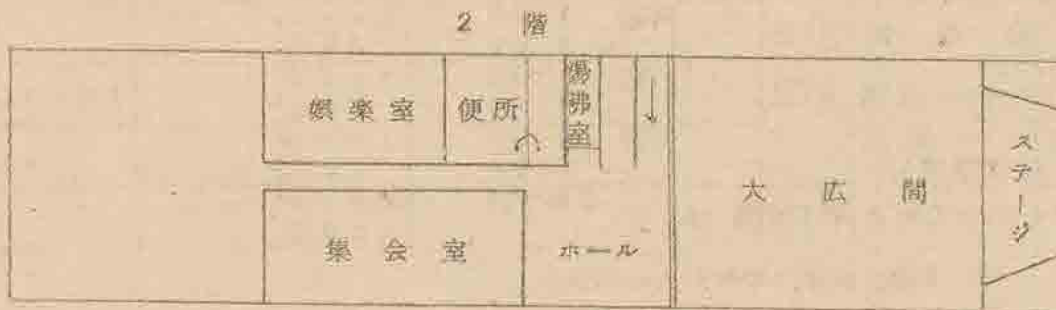 2 階
娯楽室
便所
湯沸室
大広間
ステージ
集会室
ホール